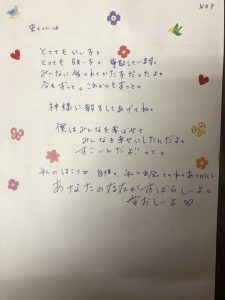 No 9
里ちゃんは
とってもいい子。
とっても強い子。尊敬しています。
みんなに愛されていた子だったよ。
今もずっと。これからもずっと。
神様に報告してあげてね。
僕はみんなを喜ばせて
みんなを幸せにしたんだよ。
すごいんだよ!!って。
私のほこり 自慢。私と出会ってくれてありがとう
あなたの
すばらしいよ。